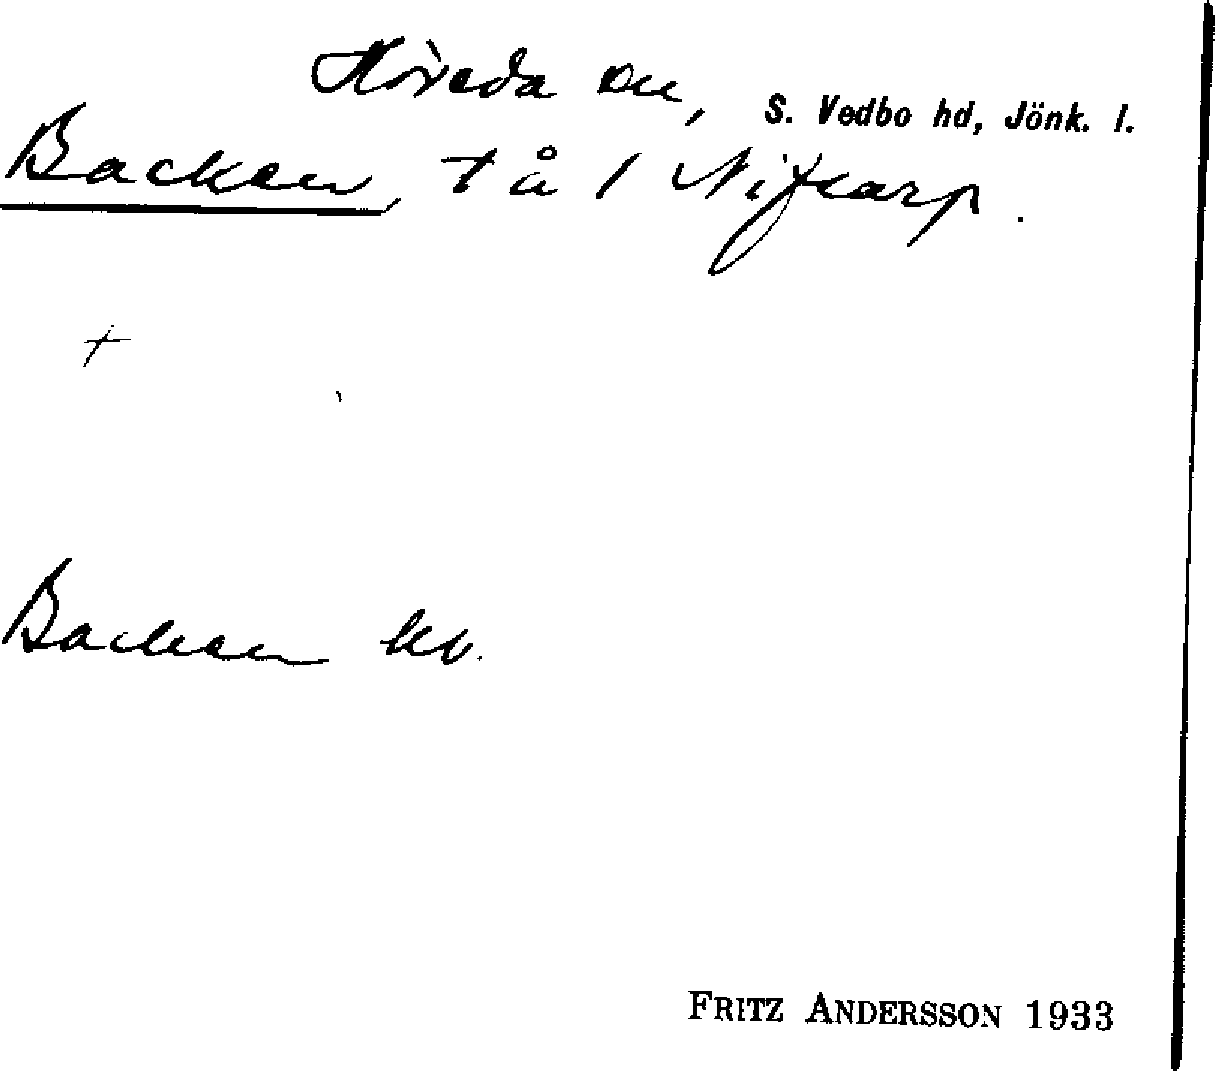 Höreda sn, S. Vedbo hd, Jönk. l.
Backen, t å 1 Nifkarp.
+
Backen hv.
FRITZ ANDERSSON 1933